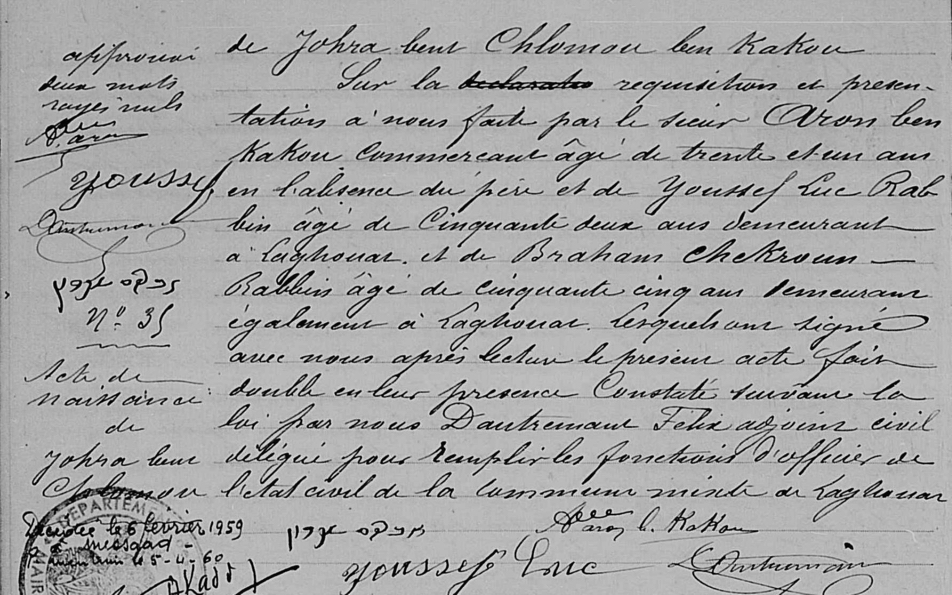 approuvé
deux mots
rayés nuls
Aaron
Youssef
Dautremant
Nº 35
Acte de
naissance
de
Johra bent
Chlomou
Décédée le 6 février 1959
à
5-4-60
DEPARTEMEN
MAIRI
de Johra bent Chlomou ben Kakou
Sur la declaratio requisition et présen-
tation à nous faite par le sieur Aron ben
Kakou Commerçant âgé de trente et un ans
en l'absence du père et de Youssef Luc Rab-
bin âgé de Cinquante deux ans demeurant
à Laghouat. et de Braham Chekroun —
Rabbin âgé de cinquante cinq ans demeurant
également à Laghouat. Lesquels ont signé
avec nous après lecture le présent acte fait
double en leur presence Constaté suivant la
loi par nous Dautremant Félix adjoint civil
délégué pour remplir les fonctions d'officier de
l'état civil de la commune mixte de Laghouat
Aaron b. Kakou
Youssef Luc
Dautremant